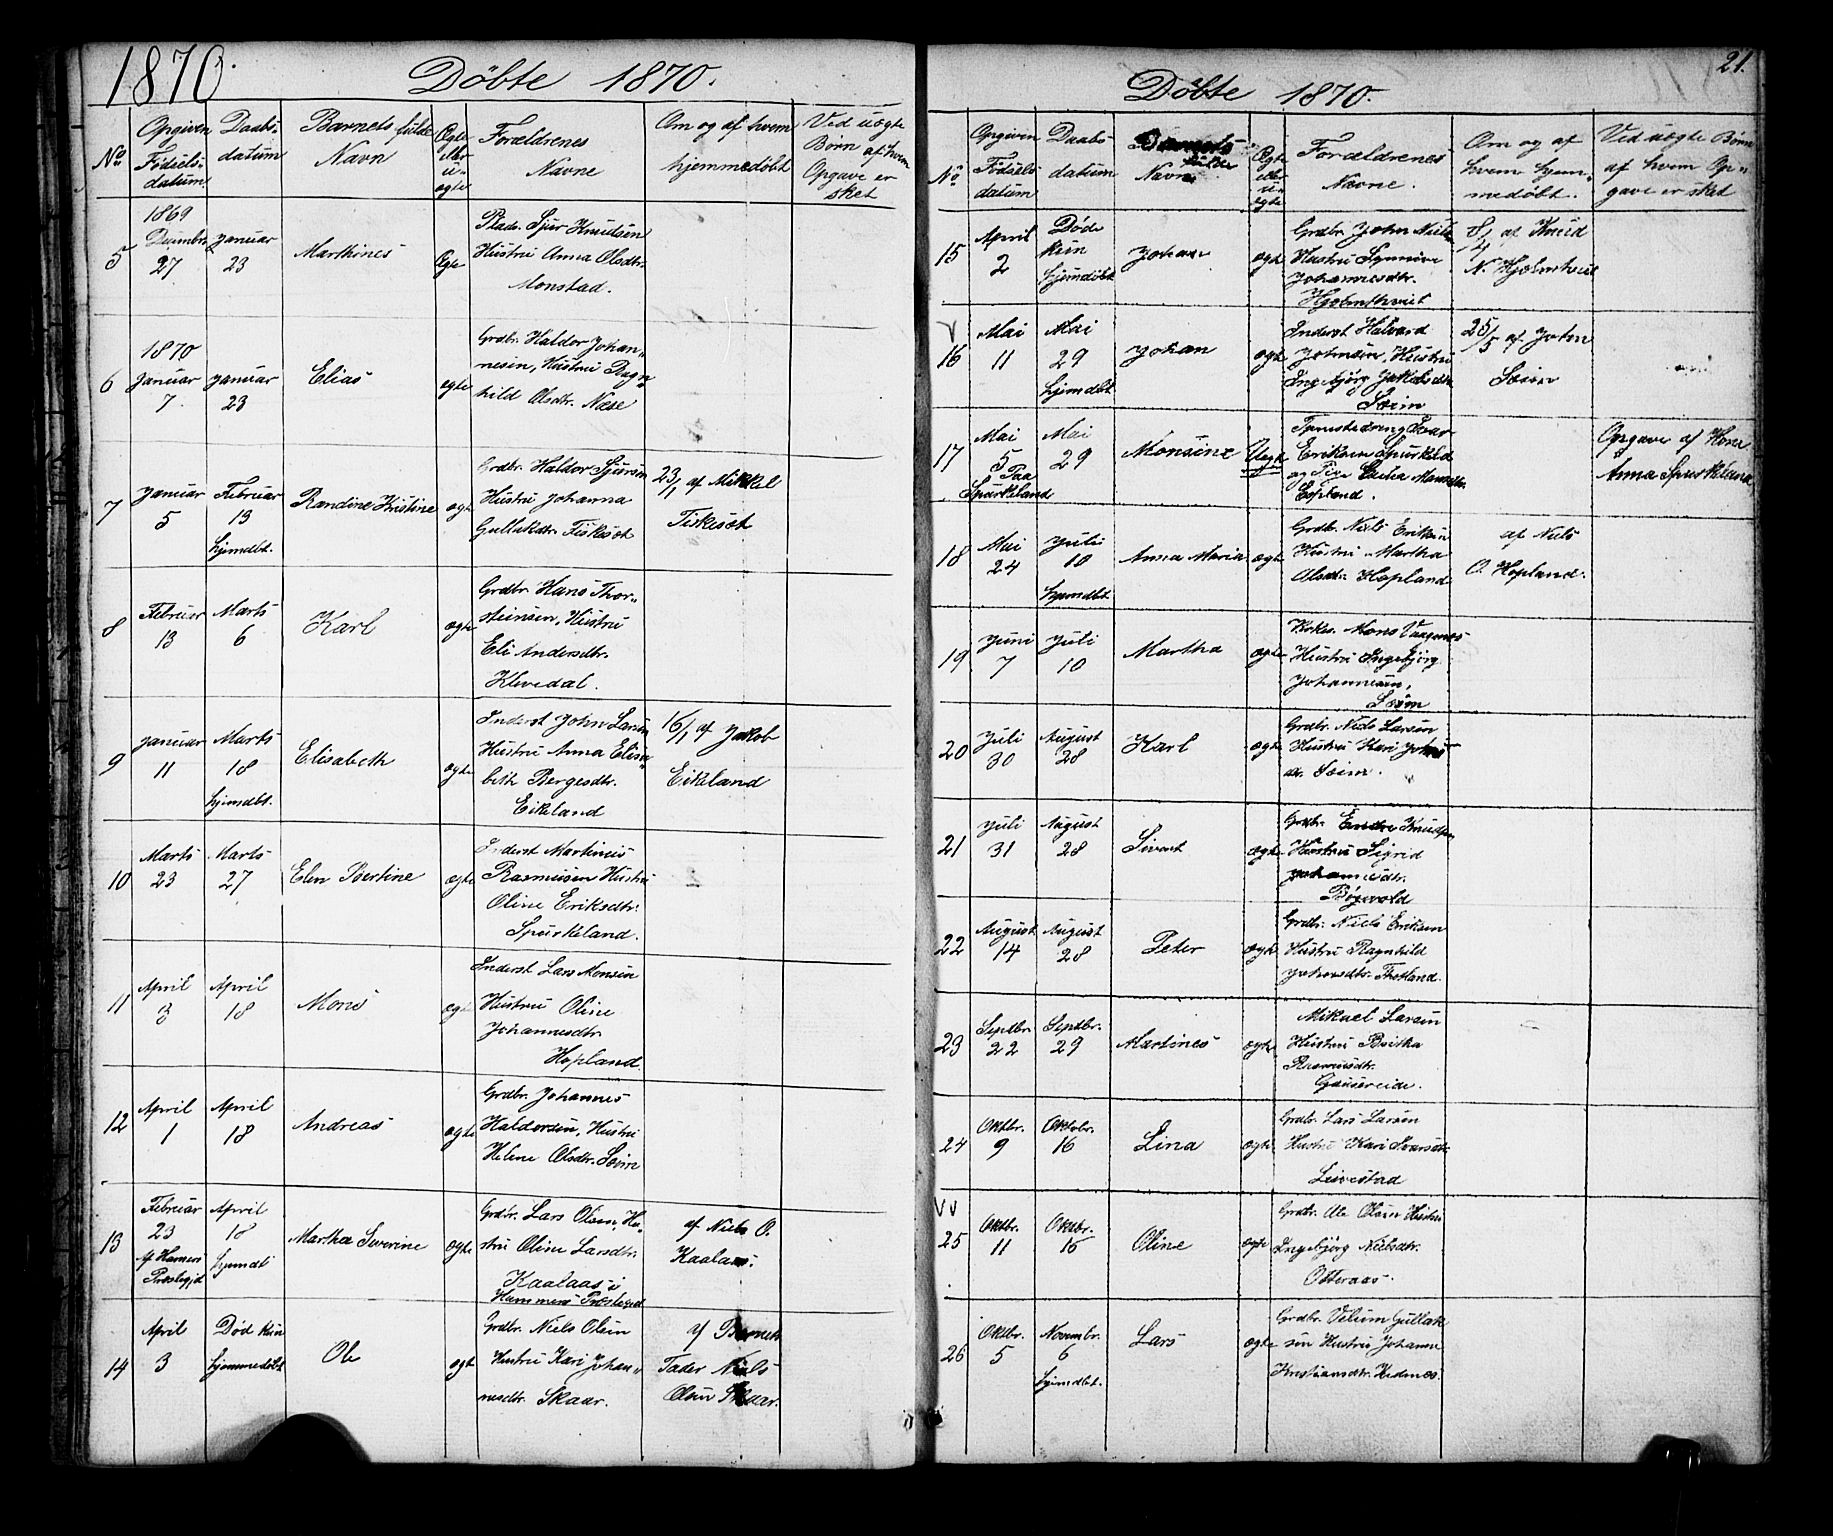 1870.
Döbte 1870.
No
Opgiven
Födsels-
datum
Daabs-
datum
Barnets fulde
Navn
Ægte
eller
u-
ægte
Forældrenes
Navne
Om og af hvem
hjemmedöbt
Ved uægte
Børn af hvem
Opgave er
sket
5
1869
27
Januar
23
Marthines
Ægte
Sjur Knudsen
Hustru Anna Olsdtr.
Monstad.
6
1870
Januar
7
Januar
23
Elias
ægte
Grdbr. Haldor Johan-
nesen, Hustru Ragn-
hild Olsdtr. Næse
7
Januar
5
Februar
13
hjemdbt.
Randine Kristine
ægte
Grdbr. Haldor Sjursen
Hustru Johanna
Gulleksdtr. Fiskesæt
23/1 af Mikkel
Fiskesæt
8
Februar
13
Marts
6
Karl
ægte
Grdbr. Hans Thor-
steinsen, Hustru
Eli Andersdtr.
Klevedal.
9
Januar
11
Marts
18
hjemdbt.
Elisabeth
ægte
Inderst John Larsen
Hustru Anna Elisa-
beth Bergesdtr.
Eikeland
16/1 af Jakob
Eikeland
10
Marts
23
Marts
27
Elen Bertine
ægte
Inderst Martinus
Rasmusen Hustru
Oline Eriksdtr.
Spurkeland.
11
April
3
April
18
Mons
ægte
Inderst Lars Monsen
Hustru Oline
Johannesdtr.
Hopland.
12
April
1
April
18
Andreas
ægte
Grdbr. Johannes
Haldorsen, Hustru
Helene Olsdtr. Seim
13
Februar
23
af Hammers
Præstegjd
April
18
hjemdt
Martha Severine
ægte
Grdbr. Lars Olsen, Hu-
stru Oline Larsdtr.
Kaalaas i
Hammers Præstegjd
af Niels O.
Kaalaas.
14
April
3
Død kun
hjemmedöbt
Ole
ægte
Grdbr. Niels Olsen
Hustru Kari Johan-
nesdtr. Skaar.
af Barnets
Fader Niels
Olsen Skaar.
21.
Döbte 1870.
No
Opgiven
Födsels
datum
Daabs-
datum
Barnets
fulde
Navn
Ægte
eller
u-
ægte
Forældrenes
Navne.
Om og af
hvem hjem-
medöbt.
Ved uægte Børn
af hvem Op-
gave er sket
15
April
2
Døde
kun
hjemdöbt
Johan
ægte
Grdbr. John Niels
Hustru Synnive
Johannesdtr.
Hjelmtveit
8/4 af Knud
N. Hjelmtveit
V
16
Mai
11
Mai
29
hjemdbt.
Johan
ægte
Inderst Halvard
Johnsen, Hustru
Ingebjørg Jakobsdtr.
Seim
25/5 af John
Seim
17
Mai
5
Paa
Spurkeland
Mai
29
Monsine
Uægte
Tjenestedreng Ivar
Eriksen Spurkeld
og Pige
Hopland.
Opgaver af Kone
Anna Spurkeland
18
Mai
24
Juli
10
hjemdbt.
Anna Maria
ægte
Grdbr. Niels Eriksen
Hustru Martha
Olsdtr. Hopland
af Niels
O. Hopland.
19
Juni
7
Juli
10
Martha
ægte
Mons Vaagenes
Hustru Ingebjørg
Johannesen,
Seim
20
Juli
30
August
28
Karl
ægte
Grdbr. Niels Larsen
Hustru Kari Johns
dr. Seim.
21
Juli
31
August
28
Sivert
ægte
Grdbr. Endre Knudsen
Hustru Sigrid
Johannesdtr.
Bøgevold
22
August
14
August
28
Peter
ægte
Grdbr. Niels Eriksen
Hustru Ragnhild
Johansdtr. Fletland.
23
Septbr.
22
Septbr.
29
Martines
ægte
Mikael Larsen
Hustru Britha
Rasmusdtr.
Gausereide.
24
Oktbr.
9
Oktobr.
16
Lina
ægte
Grdbr. Lars Larsen
Hustru Kari Ivarsdtr.
Leivestad
VV
25
Oktbr.
11
Oktbr.
16
Oline
ægte
Grdbr. Ole Olsen Hustru
Ingebjørg Nielsdtr.
Otteraas.
26
Oktbr.
5
Novembr.
6
hjemdbt.
Lars
ægte
Grdbr. Villum Gullak
sen Hustru Johanne
Kristiansdtr. Hednes.